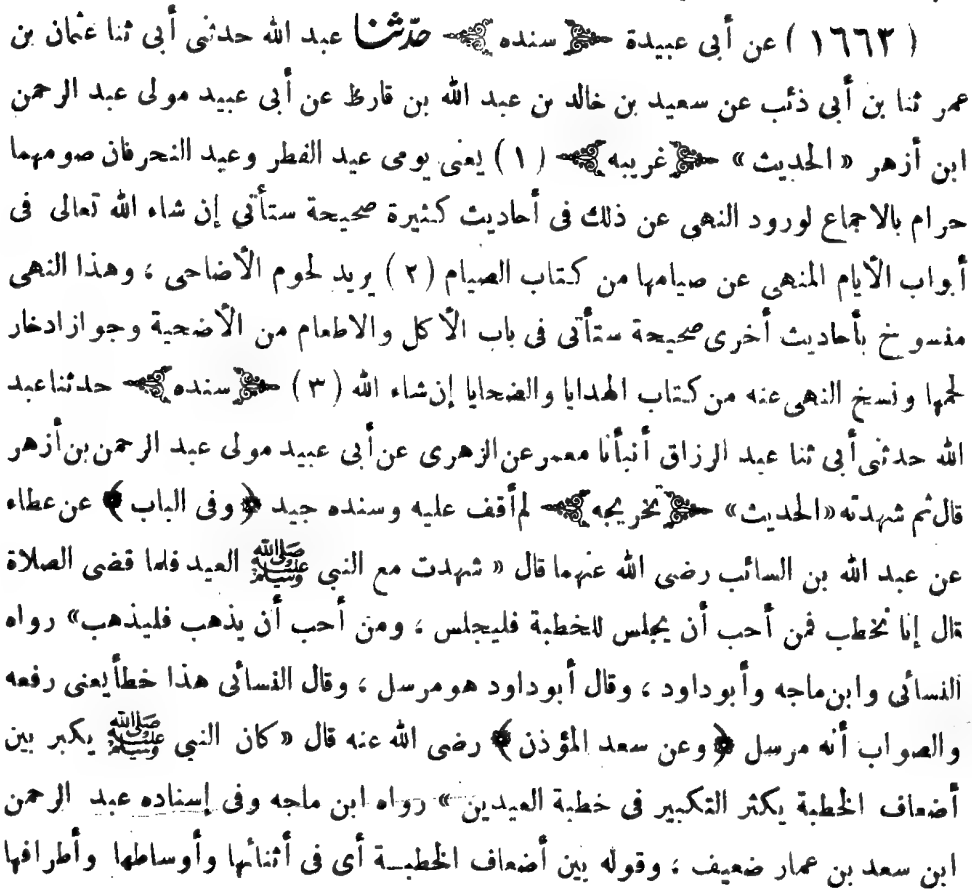 ( ١٦٦٣ ) عن أبى عبيدة ﴿ سنده ﴾ حدّثنا عبد الله حدثنى أبى ثنا عثمان بن
عمر ثنا بن أبى ذئب عن سعيد بن خالد بن عبد الله بن قارظ عن أبى عبيد مولى عبد الرحمن
ابن أزهر « الحديث » ﴿ غريبه ﴾ ( ١ ) يعنى يومى عيد الفطر وعيد النحر فان صومهما
حرام بالاجماع لورود النهى عن ذلك فى أحاديث كثيرة صحيحة ستأتى إن شاء الله تعالى فى
أبواب الأيام المنهى عن صيامها من كتاب الصيام ( ٢ ) يريد لحوم الأضاحى ، وهذا النهى
منسوخ بأحاديث أخرى صحيحة ستأتى فى باب الأكل والاطعام من الأضحية وجواز ادخار
لحمها ونسخ النهى عنه من كتاب الهدايا والضحايا إن شاء الله ( ٣ ) ﴿ سنده ﴾ حدثنا عبد
الله حدثنى أبى ثنا عبد الرزاق أنبأنا معمر عن الزهرى عن أبى عبيد مولى عبد الرحمن بن أزهر
قال ثم شهدته « الحديث » ﴿ تخريجه ﴾ لم أقف عليه وسنده جيد ﴿ وفى الباب ﴾ عن عطاء
عن عبد الله بن السائب رضى الله عنهما قال « شهدت مع النبى ﷺ العيد فلما قضى الصلاة
قال إنا نخطب فمن أحب أن يجلس للخطبة فليجلس ، ومن أحب أن يذهب فليذهب » رواه
النسائى وابن ماجه وأبو داود ، وقال أبو داود هو مرسل ، وقال النسائى هذا خطأ يعنى رفعه
والصواب أنه مرسل ﴿ وعن سعد المؤذن ﴾ رضى الله عنه قال « كان النبى ﷺ يكبر بين
أضعاف الخطبة يكثر التكبير فى خطبة العيدين » رواه ابن ماجه وفى إسناده عبد الرحمن
ابن سعد بن عمار ضعيف ، وقوله بين أضعاف الخطبة أى فى أثنائها وأوساطها وأطرافها